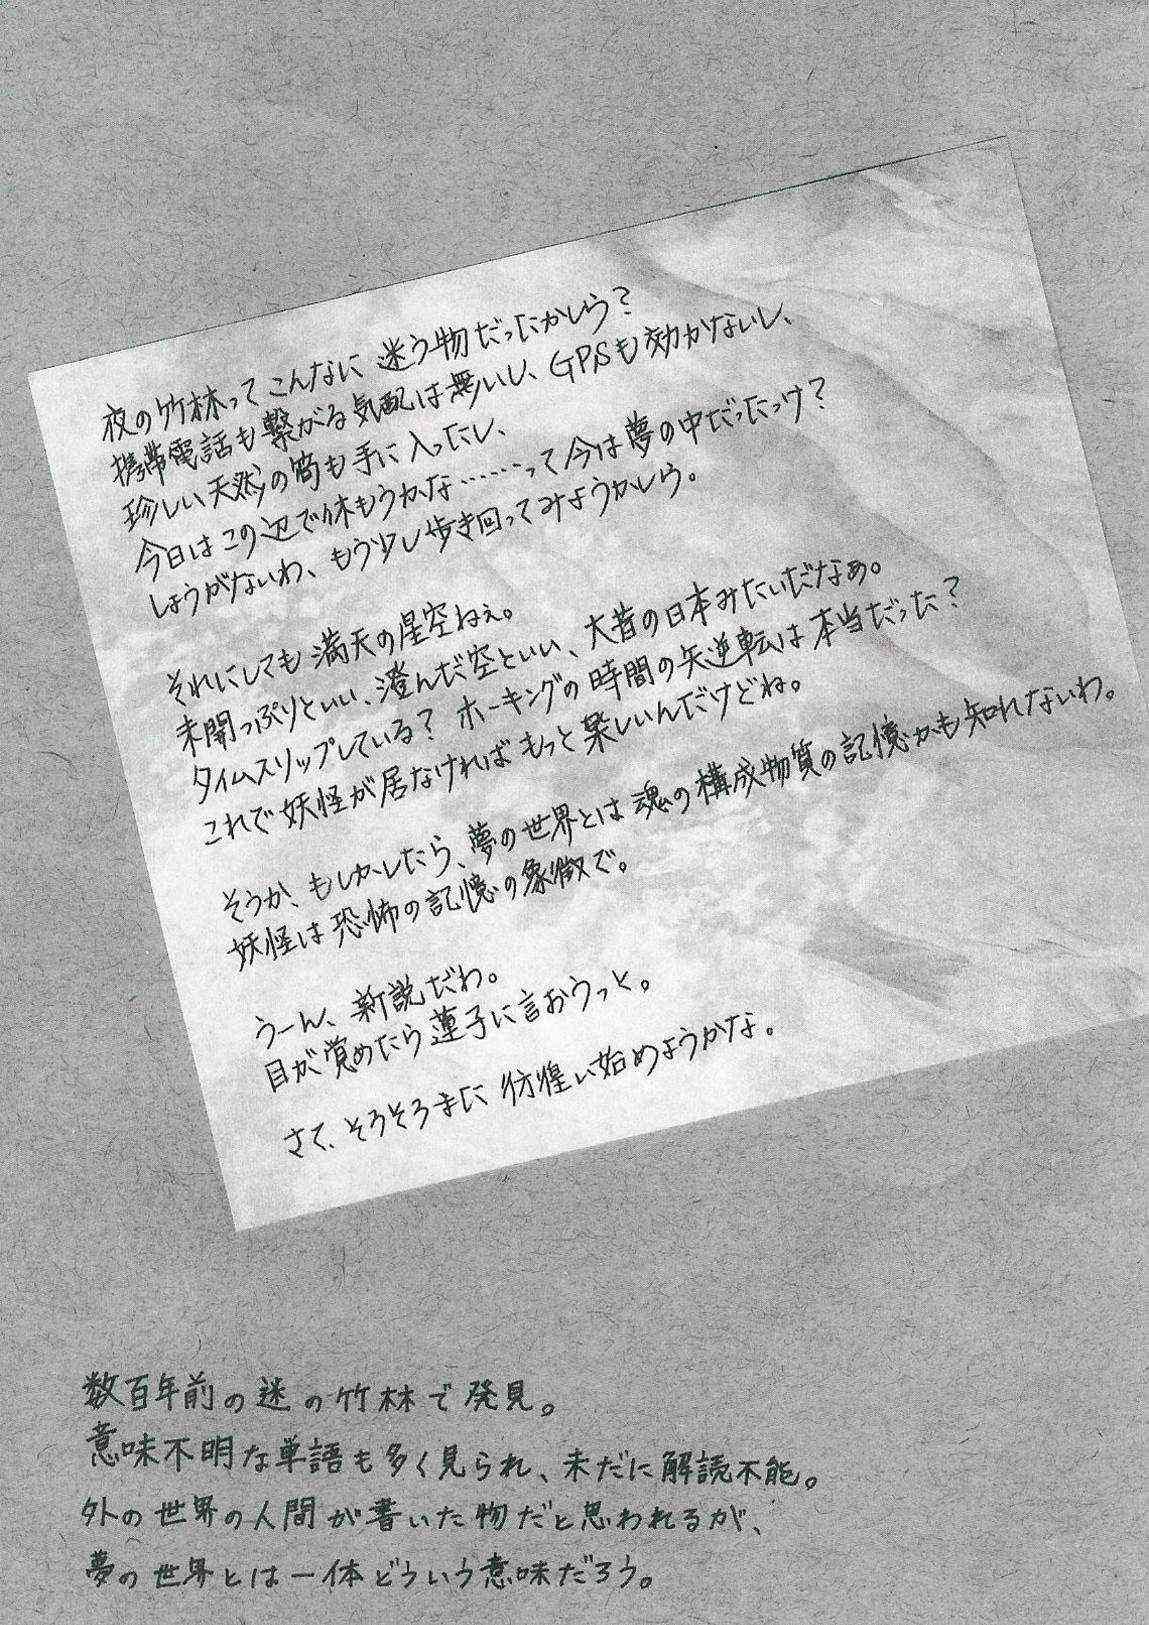 夜の竹林ってこんなに迷う物だったかしら？
携帯電話も繋がる気配は無いし、GPSも効かないし、
珍しい天然の筍も手に入ったし、
今日はこの辺で休もうかな……って今は夢の中だったっけ？
しょうがないわ、もう少し歩き回ってみようかしら。
それにしても満天の星空ねぇ。
未開っぷりといい、澄んだ空といい、大昔の日本みたいだなぁ。
タイムスリップしている？ ホーキングの時間の矢逆転は本当だった？
これで妖怪が居なければもっと楽しいんだけどね。
そうか、もしかしたら、夢の世界とは魂の構成物質の記憶かも知れないわ。
妖怪は恐怖の記憶の象徴で。
うーん、新説だわ。
目が覚めたら蓮子に言おうっと。
さて、そろそろまた彷徨い始めようかな。
数百年前の迷の竹林で発見。
意味不明な単語も多く見られ、未だに解読不能。
外の世界の人間が書いた物だと思われるが、
夢の世界とは一体どういう意味だろう。